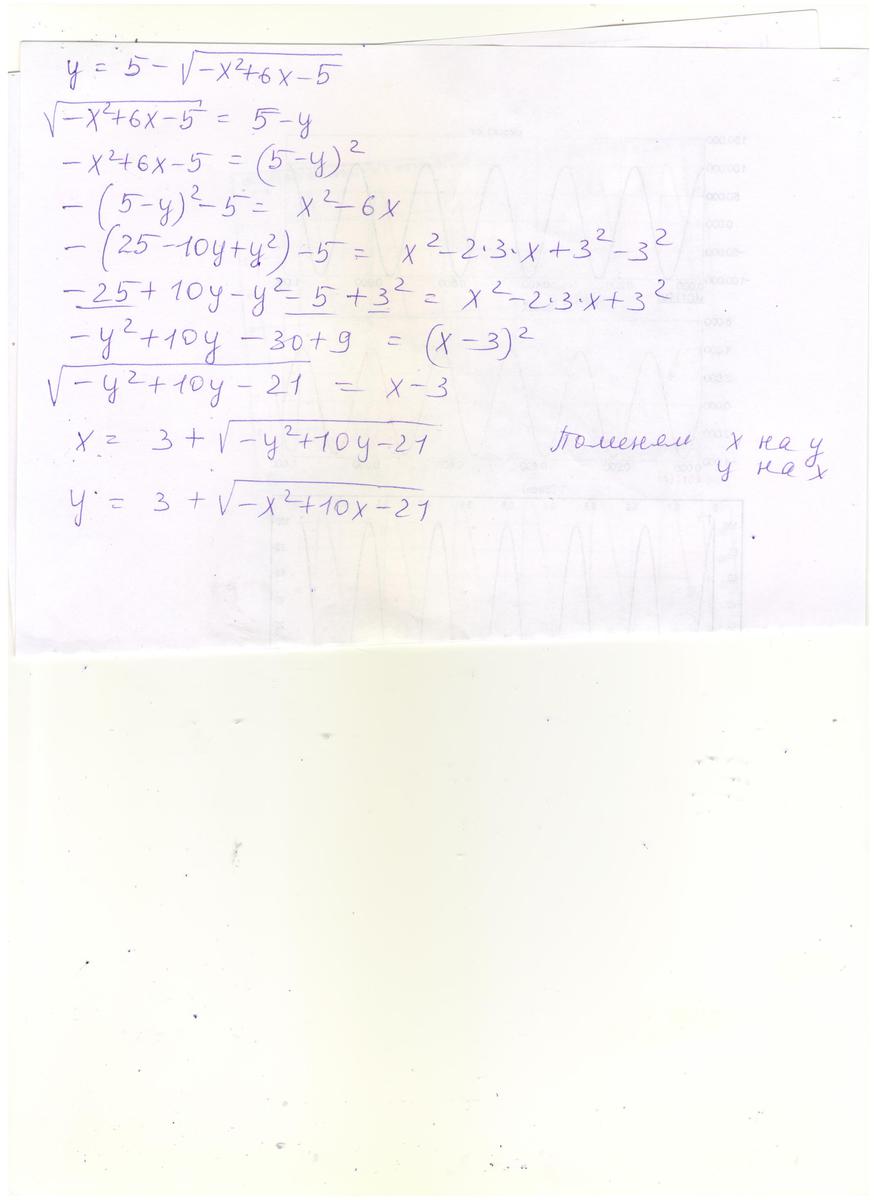 y = 5 - √(-x²+6x-5)
√(-x²+6x-5) = 5-y
-x²+6x-5 = (5-y)²
-(5-y)²-5 = x²-6x
-(25-10y+y²)-5 = x²-2·3·x+3²-3²
-25+10y-y²-5+3² = x²-2·3·x+3²
-y²+10y-30+9 = (x-3)²
√(-y²+10y-21) = x-3
x = 3+√(-y²+10y-21) Поменяем x на y
y на x
y = 3+√(-x²+10x-21)